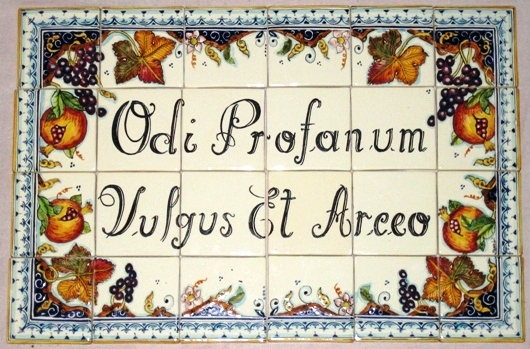 Odi Profanum
Vulgus Et Arceo